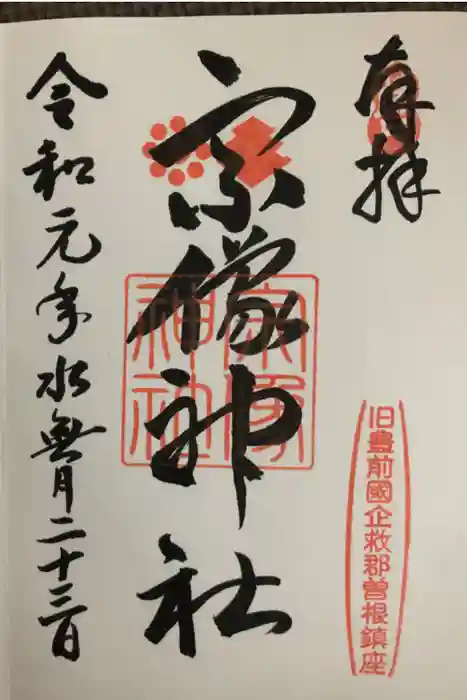 奉拝
旧豊前國企救郡曽根鎮座
宗像神社
宗像神社
令和元年水無月二十三日